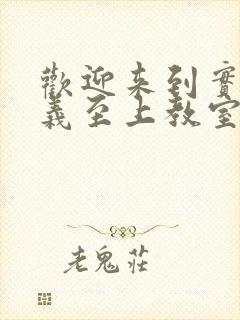 歡迎来到實
義至上教室
老鬼莊